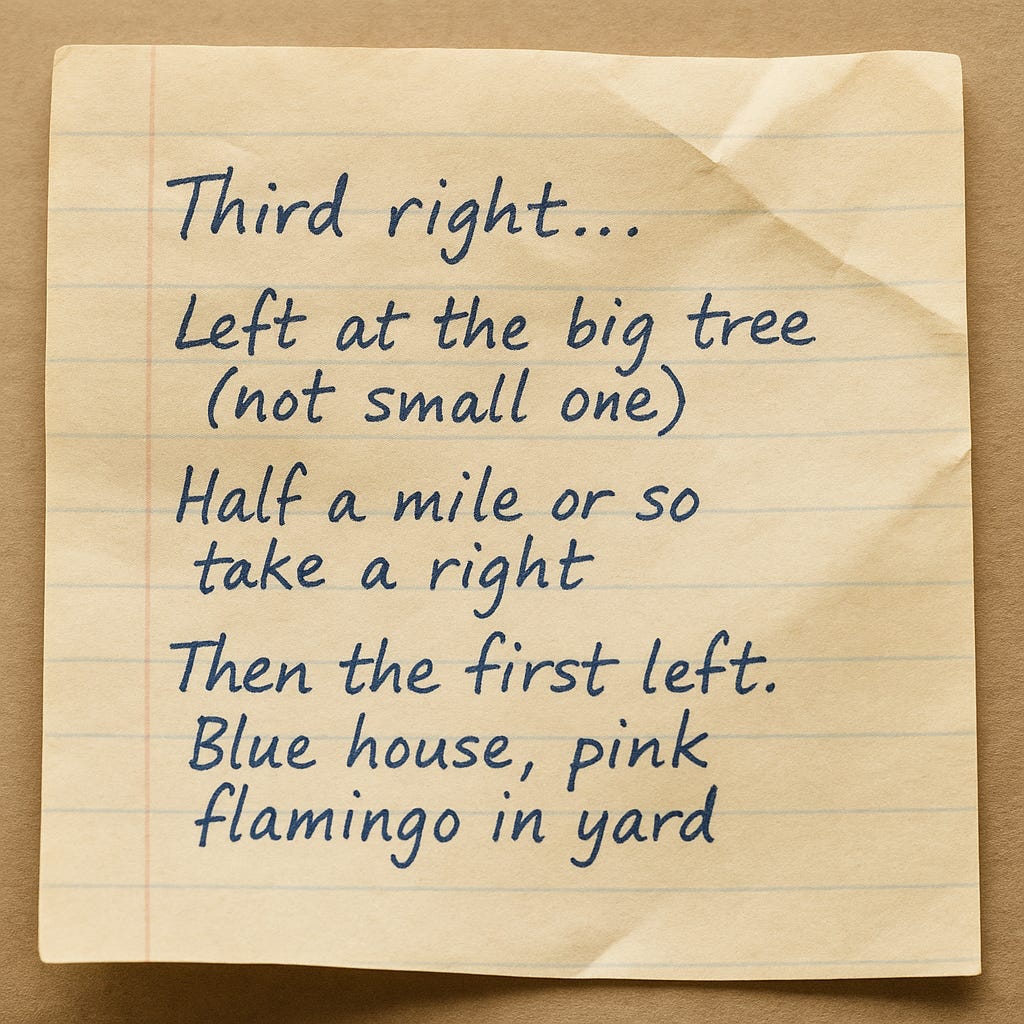 Third right...
Left at the big tree
(not small one)
Half a mile or so
take a right
Then the first left.
Blue house, pink
flamingo in yard